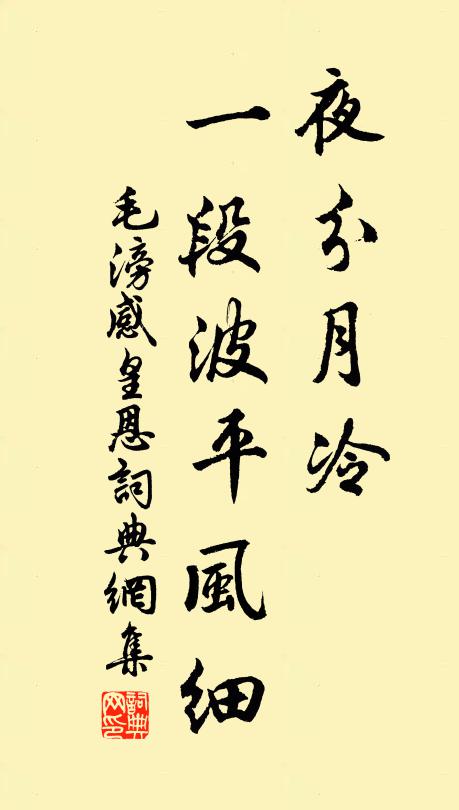 夜分月冷
一段波平風細
毛滂感皇恩詞典網集
詞典網印